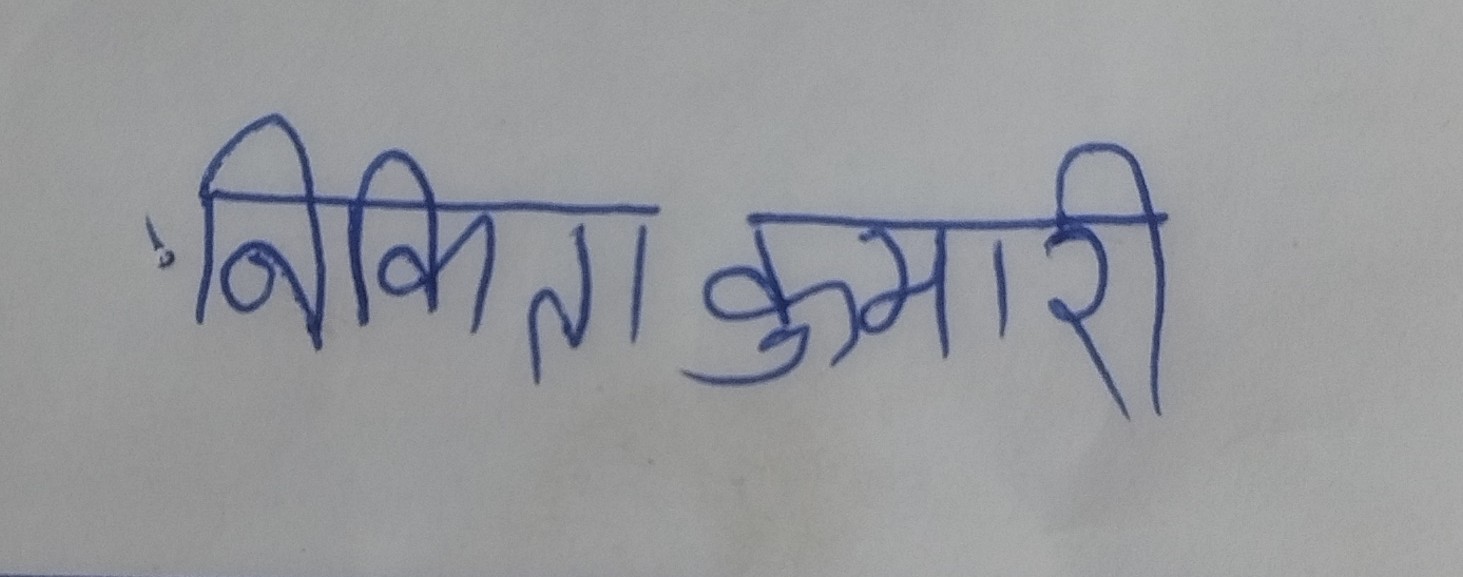 निकिता कुमारी